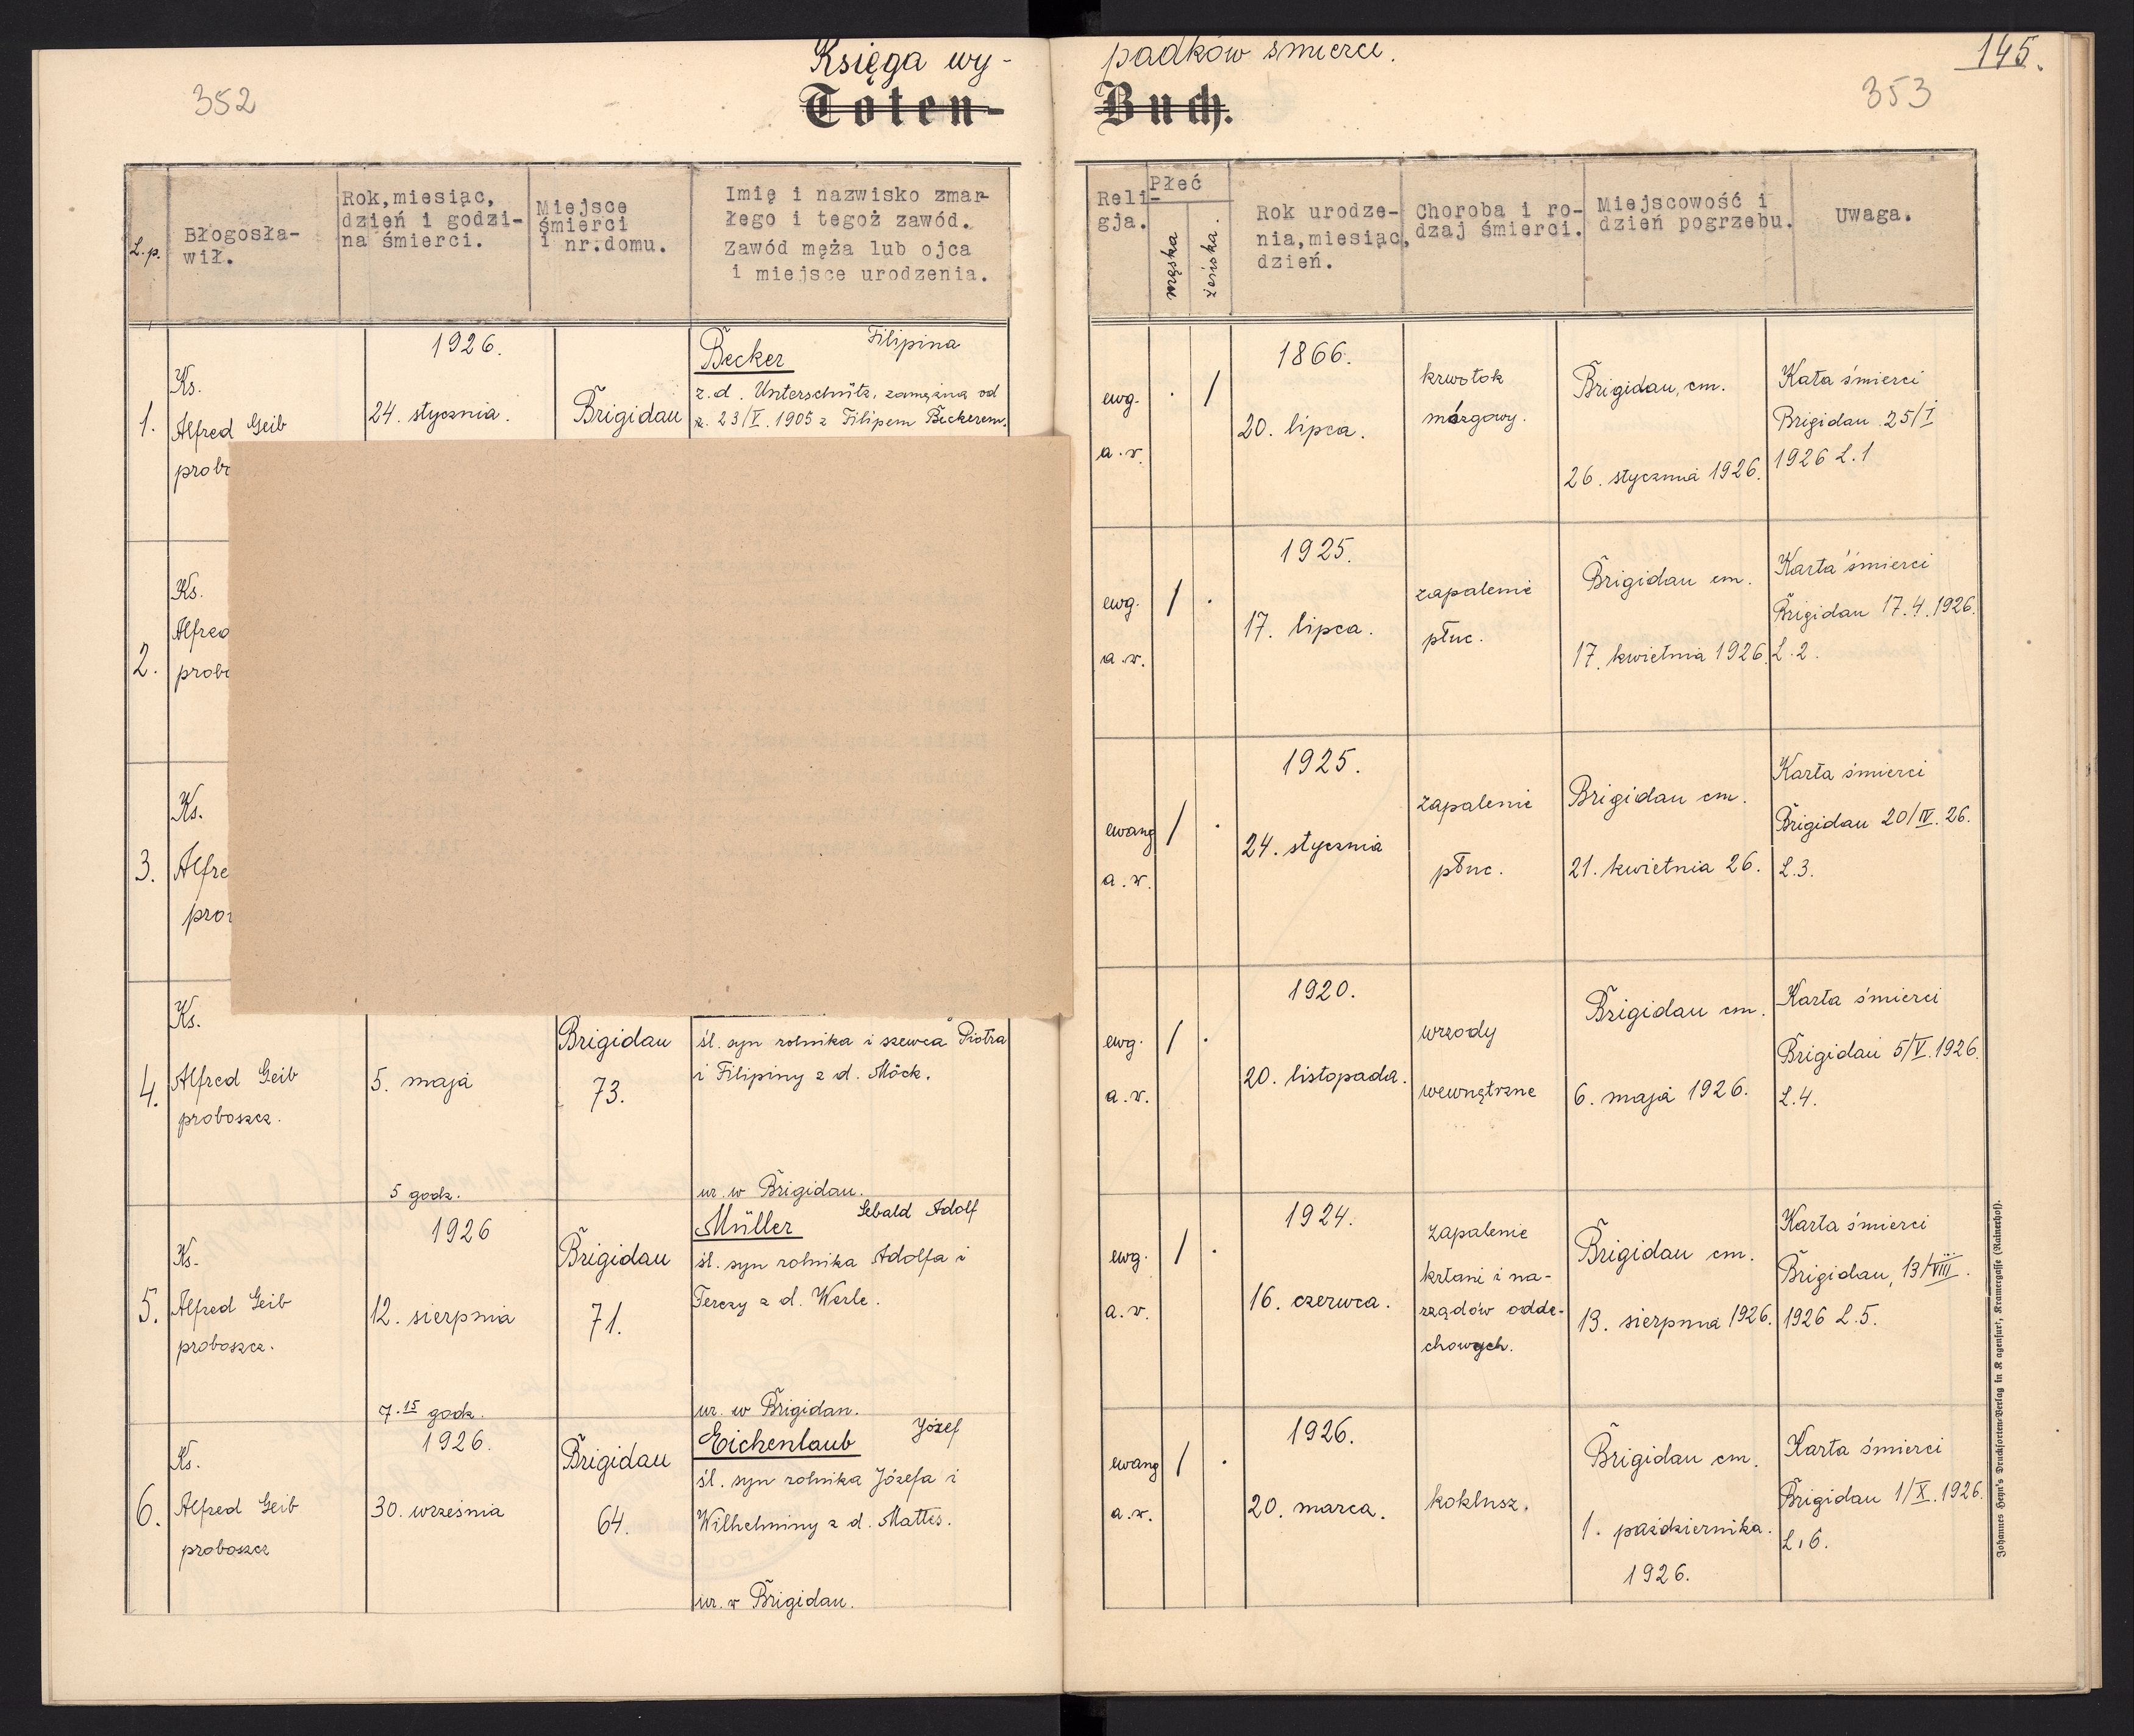 Księga wy-
padków śmierci.
145.
352
353
Toten-
Buch.
L.p.
Błogosła-
wił.
Rok, miesiąc,
dzień i godzi-
na śmierci.
Miejsce
śmierci
i nr.domu.
Imię i nazwisko zmar-
łego i tegoż zawód.
Zawód męża lub ojca
i miejsce urodzenia.
Reli-
gja.
Płeć
męska
żeńska.
Rok urodze-
nia,miesiąc,
dzień.
Choroba i ro-
dzaj śmierci.
Miejscowość i
dzień pogrzebu.
Uwaga.
1.
Ks.
Alfred Geib
1926.
24. stycznia.
Brigidau
Becker Filipina
z.d. Unterschütz, zamężna od
r. 23/I. 1905 z Filipem Beckerem.
ewg.
a.v.
. /
1866.
20. lipca.
krwotok
mózgowy.
Brigidau, cm.
26. stycznia 1926.
Kata śmierci
Brigidau 25/I
1926 L.1
2.
Ks.
ewg.
a.v.
/ .
1925.
17. lipca.
zapalenie
płuc.
Brigidau cm.
17. kwietnia 1926.
Karta śmierci
Brigidau 17.4.1926.
L.2.
3.
Ks.
ewang
a.v.
/ .
1925.
24. stycznia
zapalenie
płuc.
Brigidau cm.
21. kwietnia 26.
Karta śmierci
Brigidau 20/IV. 26.
L.3.
4.
Ks.
Alfred Geib
proboszcz.
5. maja
5 godz.
Brigidau
73.
śl. syn rolnika i szewca Piotra
i Filipiny z d. Möck.
ur. w Brigidau.
ewg.
a.v.
/ .
1920.
20. listopada.
wrzody
wewnętrzne
Brigidau cm.
6. maja 1926.
Karta śmierci
Brigidau 5/V. 1926.
L.4.
5.
Ks.
Alfred Geib
proboszcz.
1926
12. sierpnia
7.15 godz.
Brigidau
71.
Müller Sebald Adolf
śl. syn rolnika Adolfa i
Terezy z d. Werle.
ur. w Brigidau.
ewg.
a.v.
/ .
1924.
16. czerwca.
zapalenie
krtani i na-
rządów odde-
chowych.
Brigidau cm.
13. sierpnia 1926.
Karta śmierci
Brigidau, 13/VIII.
1926 L.5.
6.
Ks.
Alfred Geib
proboszcz
1926.
30. września
Brigidau
64.
Eichenlaub Józef
śl. syn rolnika Józefa i
Wilhelminy z d. Mattes.
ur. w Brigidau.
ewang
a.v.
/ .
1926.
20. marca.
koklusz.
Brigidau cm.
1. października.
1926.
Karta śmierci
Brigidau 1/X. 1926.
L.6.
Johannes Heyn's Drucksorten-Verlag in K agenfurt, Kramergasse (Rainerhof).